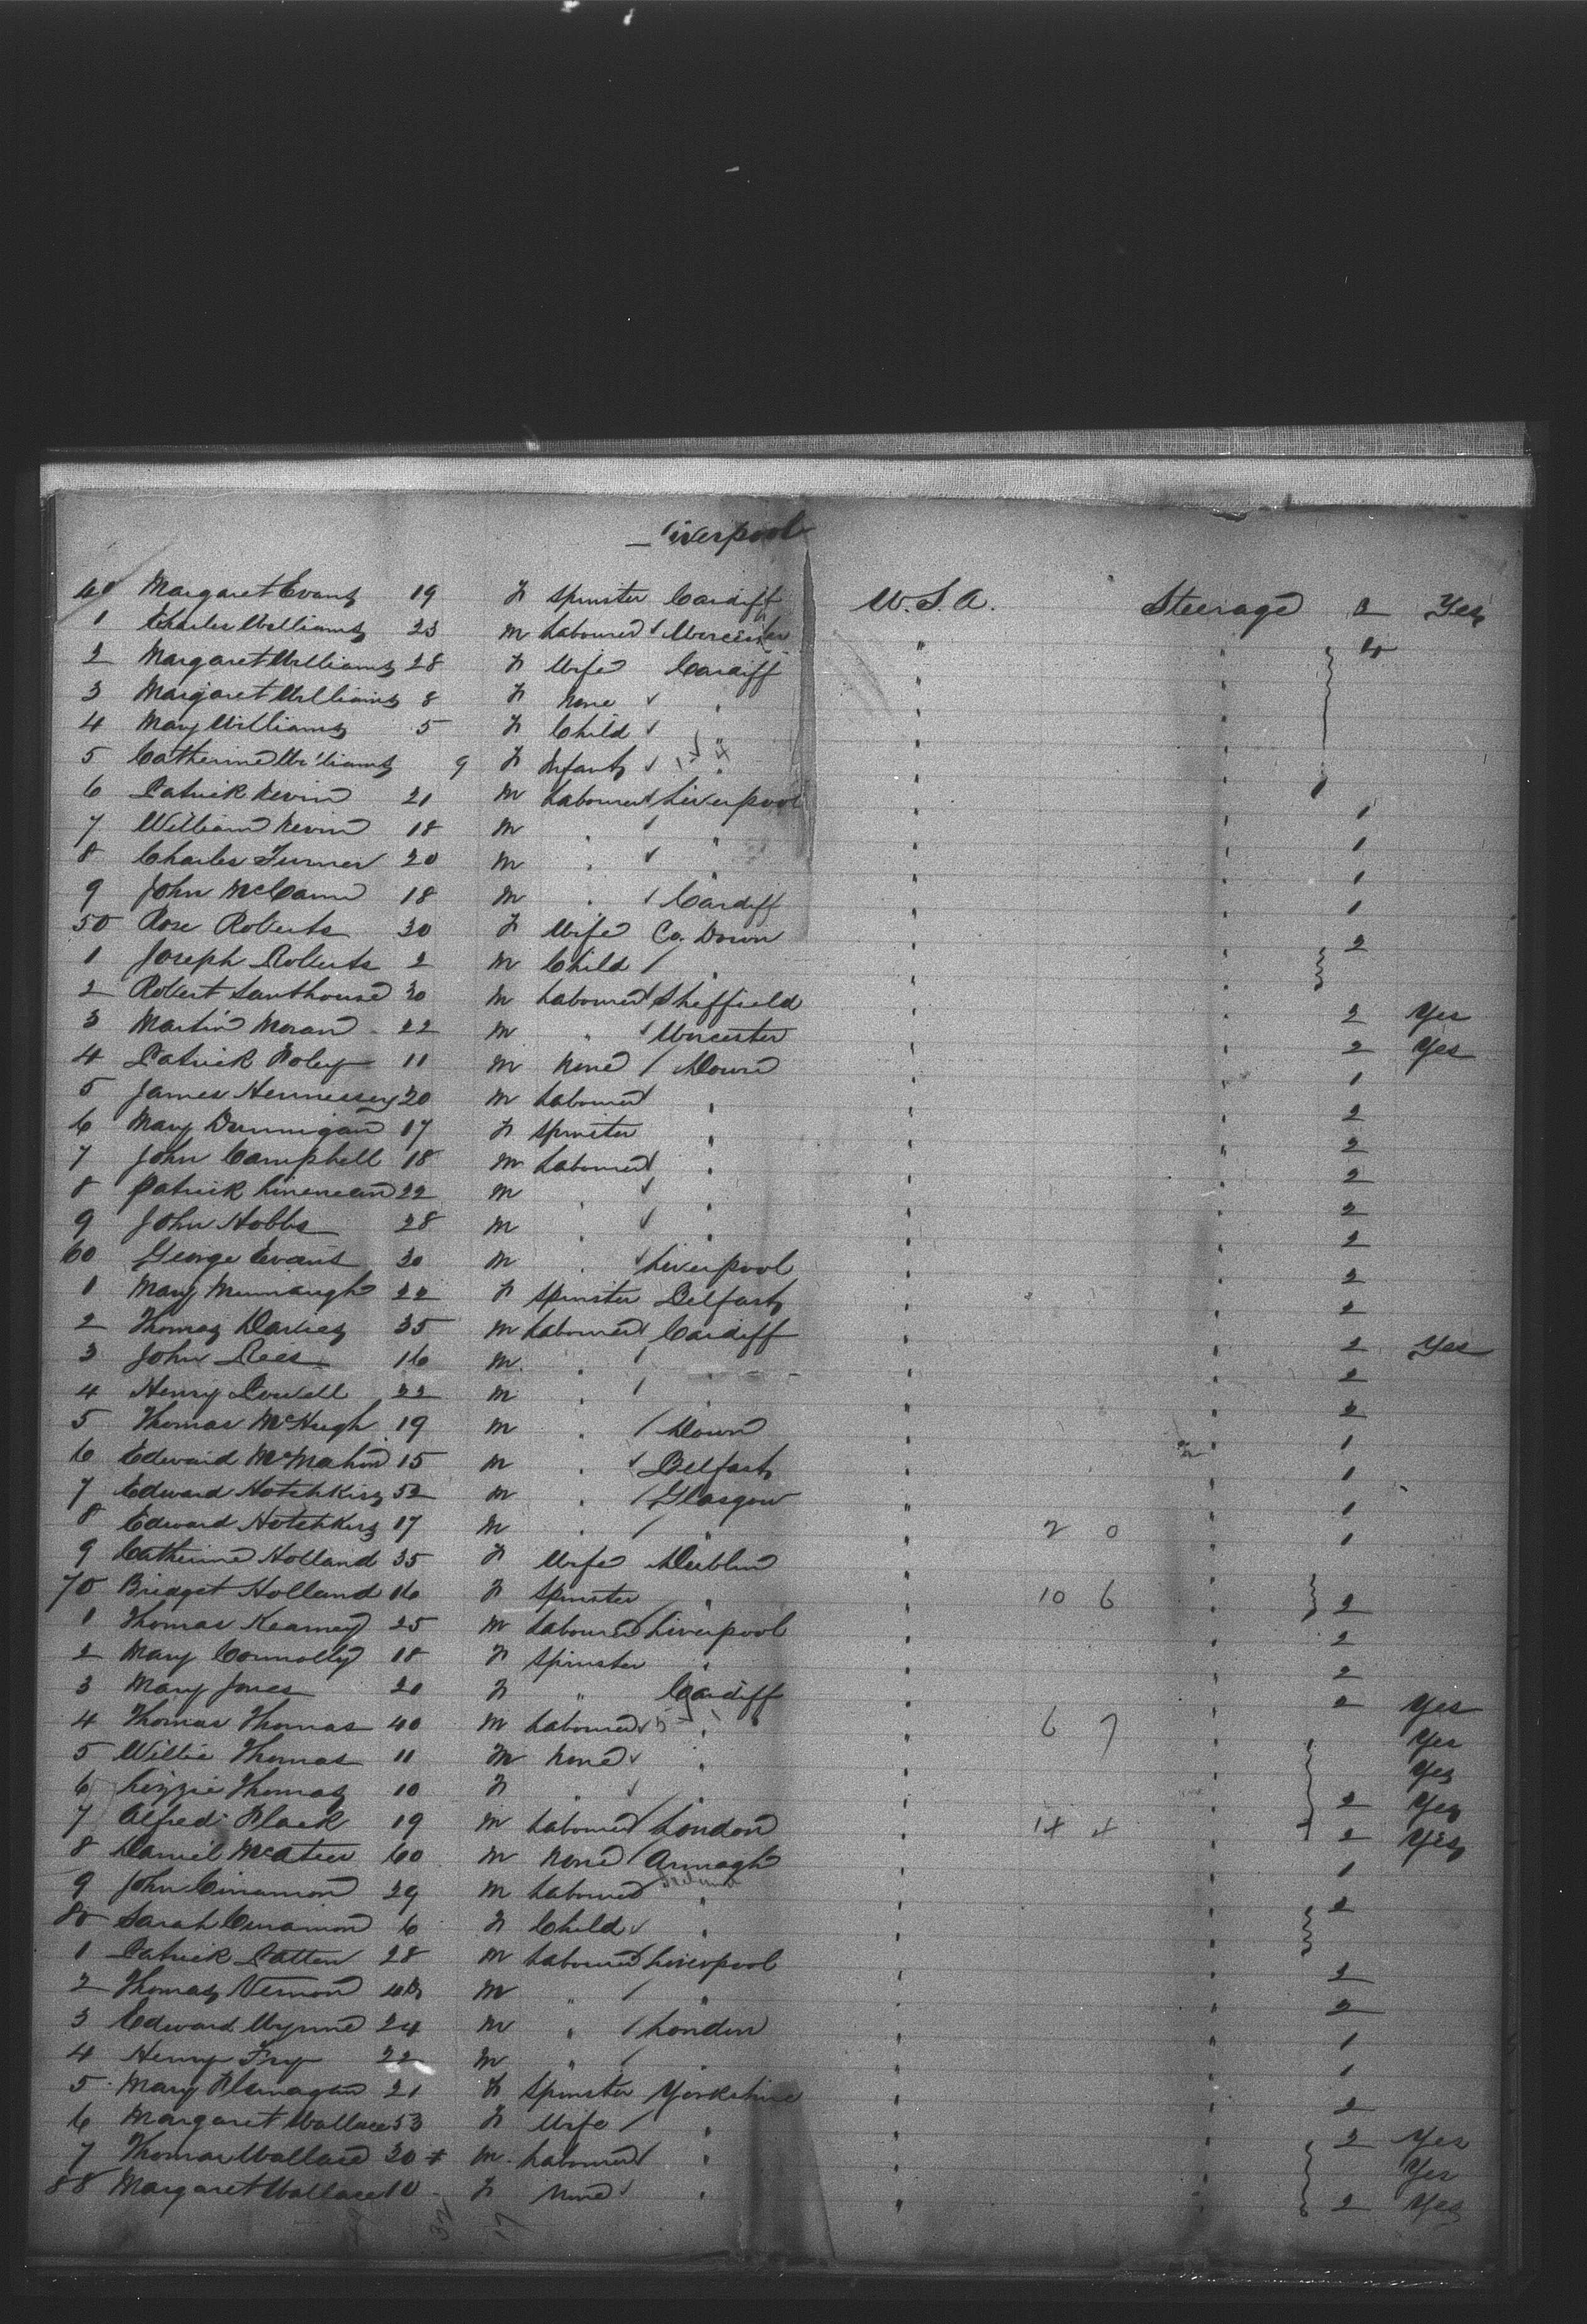 Liverpool
40 Margaret Evans 19 F Spinster Cardiff U.S.A. Steerage 2 Yes
1 Charles Williams 23 M Labourer Worcester " 4
2 Margaret Williams 28 F Wife Cardiff
3 Margaret Williams 8 F None "
4 Mary Williams 5 F Child "
5 Catherine Williams 9 F Infant "
6 Patrick Nevin 21 M Labourer Liverpool 1
7 William Nevin 18 M " " 1
8 Charles Turner 20 M " 1
9 John McCann 18 M " Cardiff 1
50 Rose Roberts 30 F Wife Co. Down 2
1 Joseph Roberts 2 M Child "
2 Robert 30 M Labourer Sheffield 2 Yes
3 Martin Moran 22 M " Worcester 2 Yes
4 Patrick Foley 11 M None Down 1
5 James Hennessey 20 M Labourer " 2
6 Mary Dunnigan 17 F Spinster " 2
7 John Campbell 18 M Labourer " 2
8 Patrick 22 M " " 2
9 John Hobbs 28 M " " 2
60 George Evans 30 M " Liverpool 2
1 Mary 22 F Spinster Belfast 2
2 Thomas Davies 35 M Labourer Cardiff 2 Yes
3 John Rees 16 M " " 2
4 Henry Powell 22 M " " 2
5 Thomas McHugh 19 M " Down 1
6 Edward McMahon 15 M " Belfast 1
7 Edward Hotchkiss 52 M " Glasgow 1
8 Edward Hotchkiss 17 M " " 2 0 1
9 Catherine Holland 35 F Wife Dublin
70 Bridget Holland 16 F Spinster " 10 6 2
1 Thomas Kearney 25 M Labourer Liverpool 2
2 Mary Connolly 18 F Spinster " 2
3 Mary Jones 20 F " Cardiff 2 Yes
4 Thomas Thomas 40 M Labourer " 6 7 Yes
5 Willie Thomas 11 M None " Yes
6 Lizzie Thomas 10 F " " 2 Yes
7 Alfred Black 19 M Labourer London 14 4 2 Yes
8 Daniel McAteer 60 M None Armagh 1
Ireland
9 John Cinamon 29 M Labourer " 2
80 Sarah Cinamon 6 F Child "
1 Patrick Patten 28 M Labourer Liverpool 2
2 Thomas Vernon M " " 2
3 Edward Wynne 24 M " London 1
4 Henry Fry 22 M " " 1
5 Mary Flanagan 21 F Spinster Yorkshire 2
6 Margaret Wallace 53 F Wife " 2 Yes
7 Thomas Wallace 20 M Labourer " Yes
88 Margaret Wallace 10 F None " 2 Yes
32 17